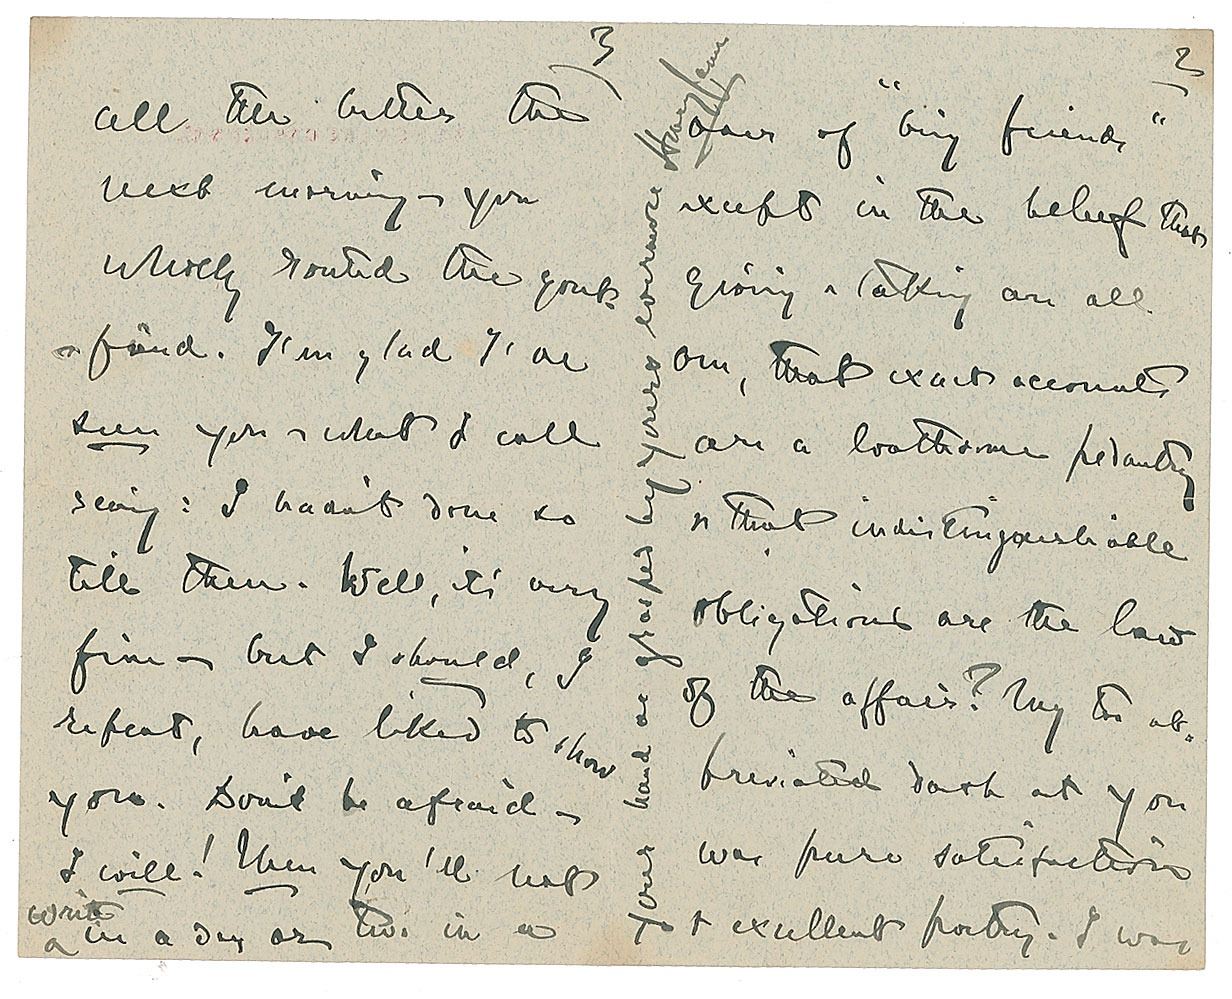 2)
ours of "big friends"
except in the belief that
giving & taking are all
one, that exact accounts
are a loathsome pedantry
& that indistinguishable
obligations are the law
of the affair? My too ab-
breviated dash at you
was pure satisfaction
& excellent poetry. I was
3)
all the better the
next morning – you
wholly routed the gouty
fiend. I'm glad I've
seen you & what I call
seeing: I hadn't done so
till then. Well, it's very
fine – but I should, I
repeat, have liked to show
you. Don't be afraid –
I will! Then you'll not
write
in a day or two in a
your hand as grasped by yours evermore
Henry James